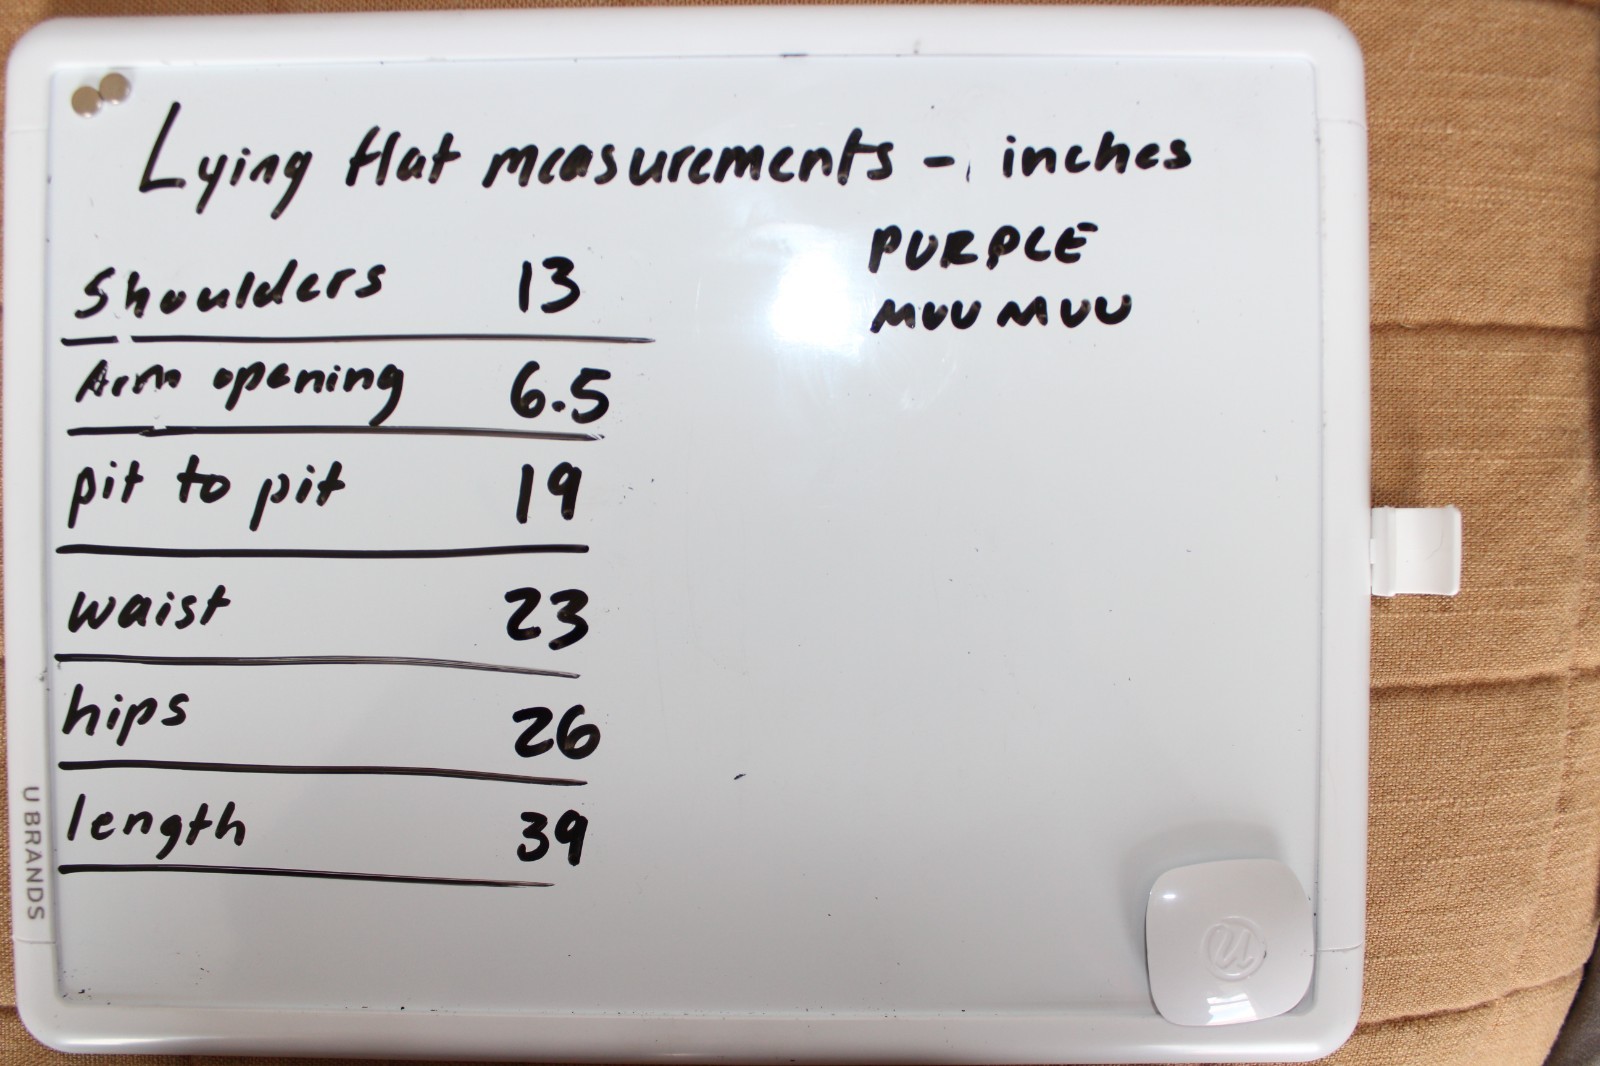 Lying flat measurements - inches
PURPLE
MUU MUU
Shoulders 13
Arm opening 6.5
pit to pit 19
waist 23
hips 26
length 39
U BRANDS
u